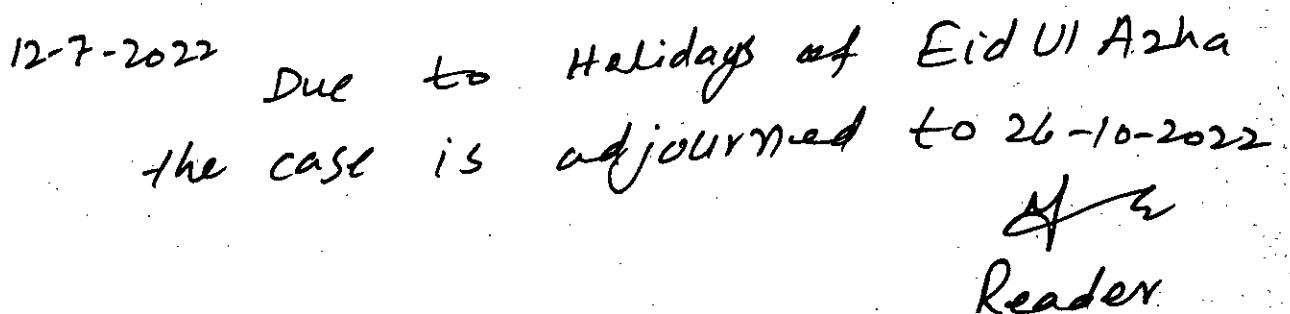 12-7-2022
Due to Holidays of Eid Ul Azha
the case is adjourned to 26-10-2022
Reader